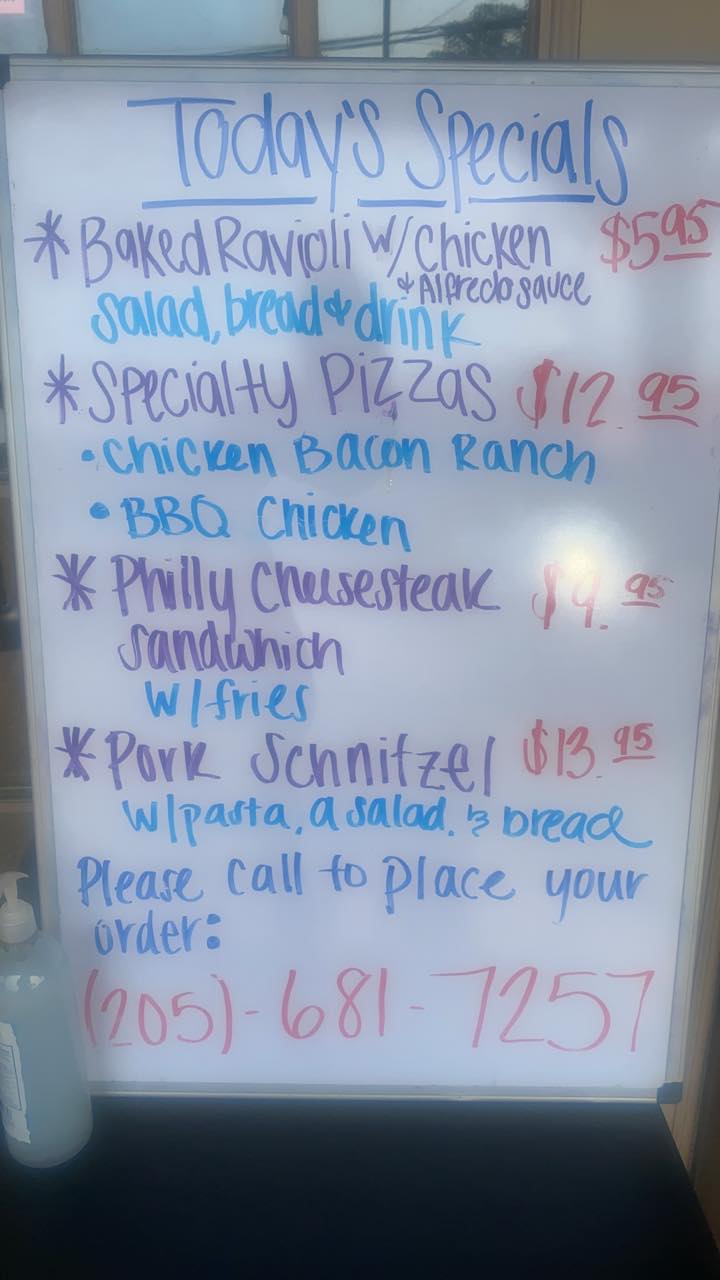 Today's Specials
* Baked Ravioli w/ Chicken $5.95
& Alfredo sauce
salad, bread & drink
* Specialty Pizzas $12.95
• Chicken Bacon Ranch
• BBQ Chicken
* Philly Cheesesteak $9.95
Sandwhich
w/fries
* Pork Schnitzel $13.95
w/pasta, a salad, & bread
Please call to place your
order:
(205)-681-7257